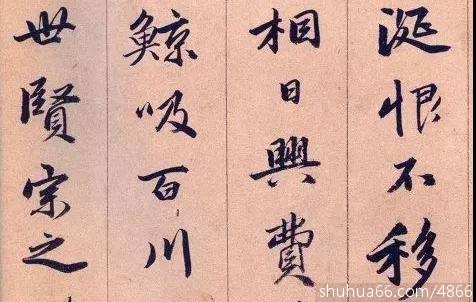 涎恨不移
相日興費
鯨吸百川
世賢宗之
shuhua66.com/4866